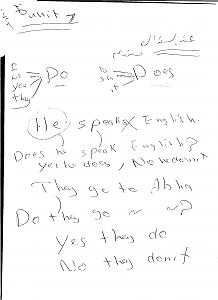 عند السؤال
نستخدم
I we you they Do
he she it Does
He speaks English.
Does he speak English?
yes he does, No he doesn't
They go to Abha
Do they go ~ ~?
Yes they do
No they don't